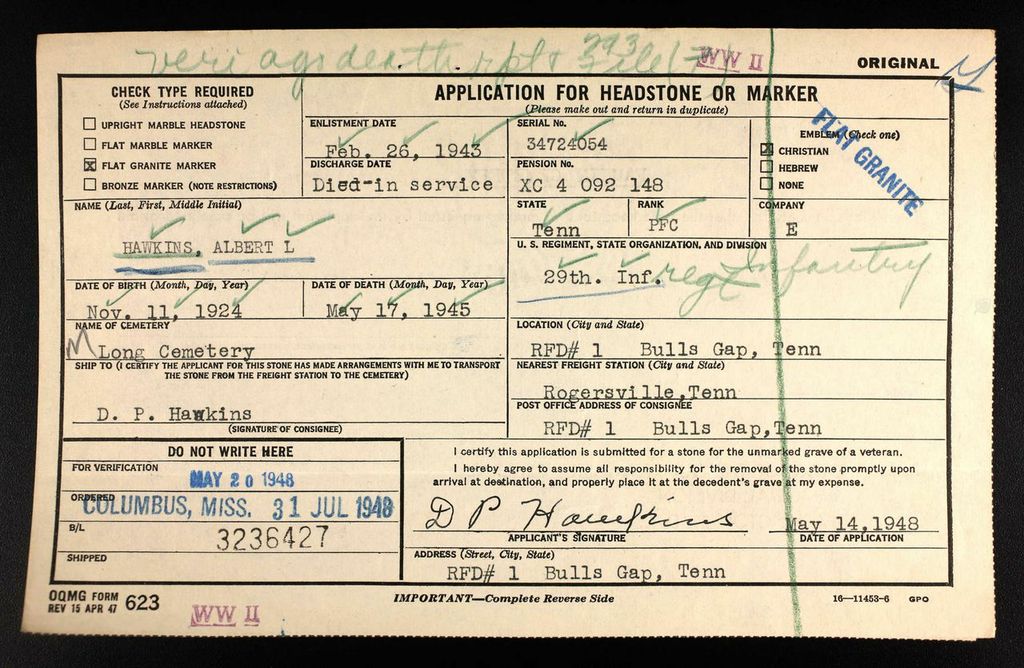 veri ags death rpt 293 file
WW II
ORIGINAL
CHECK TYPE REQUIRED
(See Instructions attached)
UPRIGHT MARBLE HEADSTONE
FLAT MARBLE MARKER
FLAT GRANITE MARKER
BRONZE MARKER (NOTE RESTRICTIONS)
APPLICATION FOR HEADSTONE OR MARKER
(Please make out and return in duplicate)
ENLISTMENT DATE
Feb. 26, 1943
DISCHARGE DATE
Died in service
SERIAL No.
34724054
PENSION No.
XC 4 092 148
EMBLEM (Check one)
CHRISTIAN
HEBREW
NONE
FLAT GRANITE
NAME (Last, First, Middle Initial)
HAWKINS, ALBERT L
STATE
Tenn
RANK
PFC
COMPANY
E
U. S. REGIMENT, STATE ORGANIZATION, AND DIVISION
29th. Inf. regt Infantry
DATE OF BIRTH (Month, Day, Year)
Nov. 11, 1924
DATE OF DEATH (Month, Day, Year)
May 17, 1945
NAME OF CEMETERY
Long Cemetery
LOCATION (City and State)
RFD# 1 Bulls Gap, Tenn
SHIP TO (I CERTIFY THE APPLICANT FOR THIS STONE HAS MADE ARRANGEMENTS WITH ME TO TRANSPORT
THE STONE FROM THE FREIGHT STATION TO THE CEMETERY)
D. P. Hawkins
(SIGNATURE OF CONSIGNEE)
NEAREST FREIGHT STATION (City and State)
Rogersville,Tenn
POST OFFICE ADDRESS OF CONSIGNEE
RFD# 1 Bulls Gap,Tenn
DO NOT WRITE HERE
FOR VERIFICATION
MAY 20 1948
ORDERED
COLUMBUS, MISS. 31 JUL 1948
B/L
3236427
SHIPPED
I certify this application is submitted for a stone for the unmarked grave of a veteran.
I hereby agree to assume all responsibility for the removal of the stone promptly upon
arrival at destination, and properly place it at the decedent's grave at my expense.
D P Hawkins
APPLICANT'S SIGNATURE
May 14,1948
DATE OF APPLICATION
ADDRESS (Street, City, State)
RFD# 1 Bulls Gap, Tenn
OQMG FORM
REV 15 APR 47 623
WW II
IMPORTANT—Complete Reverse Side
16—11453-6 GPO